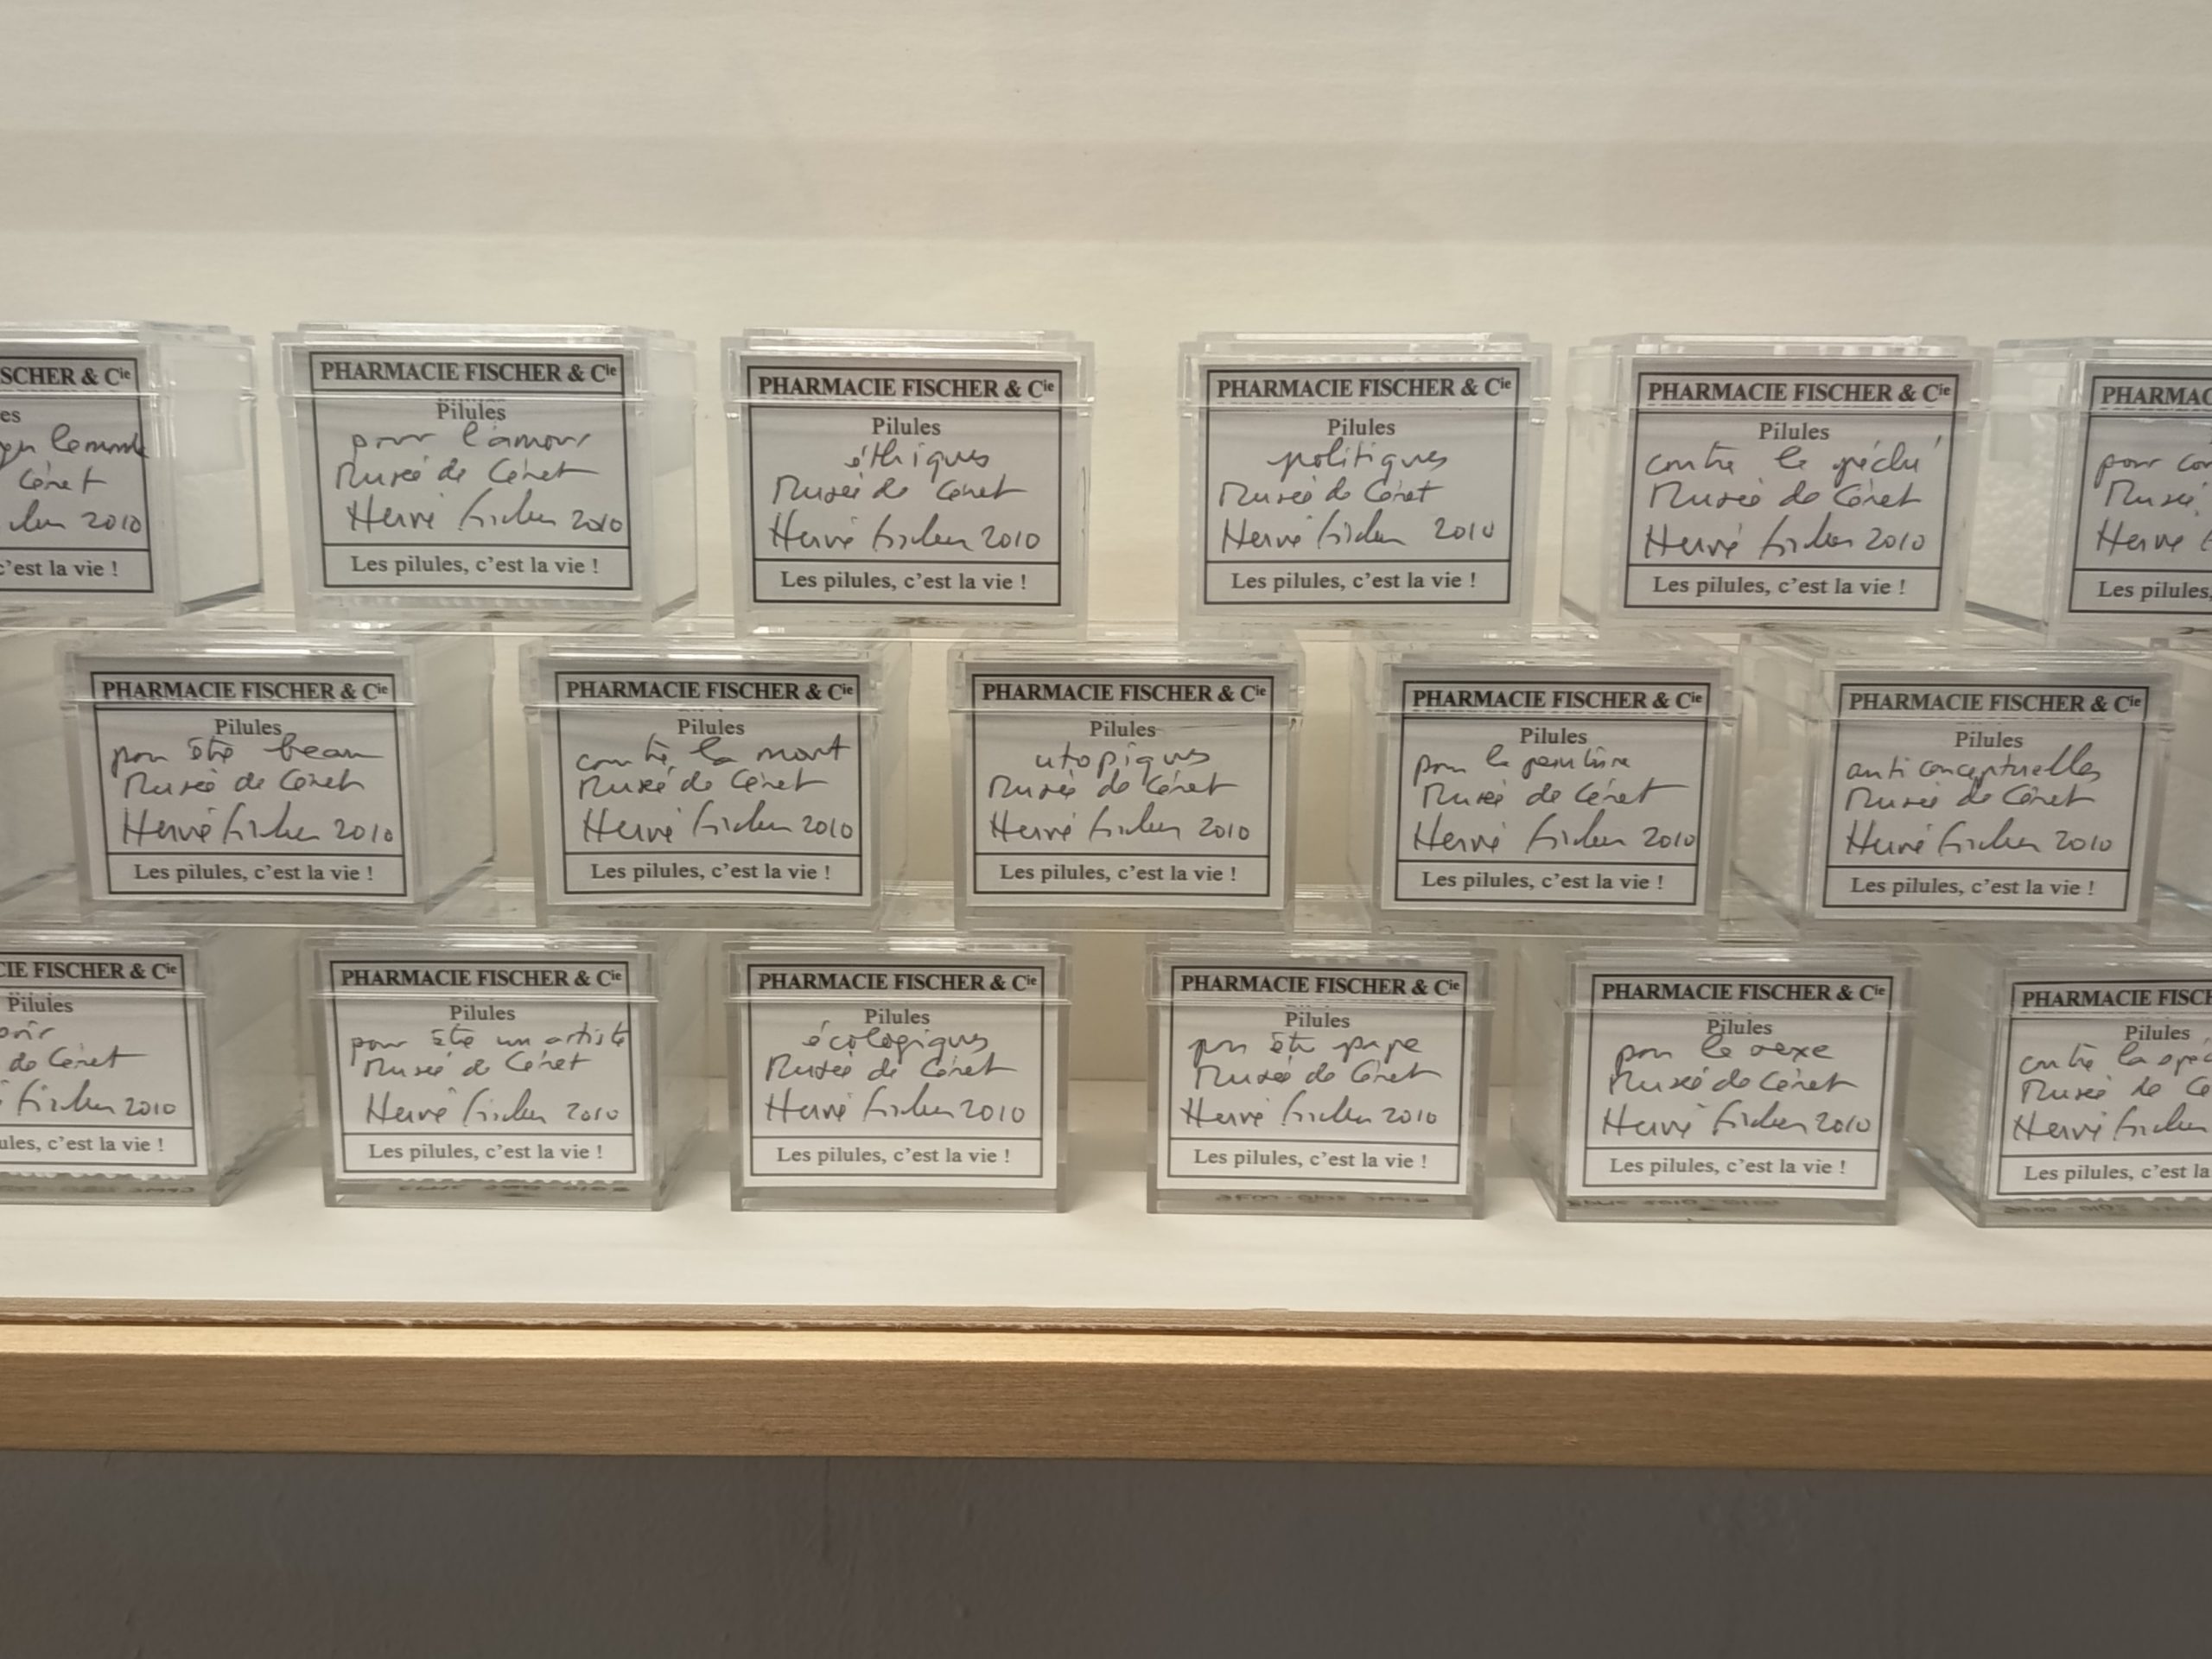 SCHER & Cie
es
le monde
Céret
2010
c'est la vie !
PHARMACIE FISCHER & Cie
Pilules
pour l'amour
Musée de Céret
Hervé Fischer 2010
Les pilules, c'est la vie !
PHARMACIE FISCHER & Cie
Pilules
éthiques
Musée de Céret
Hervé Fischer 2010
Les pilules, c'est la vie !
PHARMACIE FISCHER & Cie
Pilules
politiques
Musée de Céret
Hervé Fischer 2010
Les pilules, c'est la vie !
PHARMACIE FISCHER & Cie
Pilules
contre le péché
Musée de Céret
Hervé Fischer 2010
Les pilules, c'est la vie !
PHARMAC
pour
Musée
Hervé
Les pilules,
PHARMACIE FISCHER & Cie
Pilules
pour être beau
Musée de Céret
Hervé Fischer 2010
Les pilules, c'est la vie !
PHARMACIE FISCHER & Cie
Pilules
contre la mort
Musée de Céret
Hervé Fischer 2010
Les pilules, c'est la vie !
PHARMACIE FISCHER & Cie
Pilules
utopiques
Musée de Céret
Hervé Fischer 2010
Les pilules, c'est la vie !
PHARMACIE FISCHER & Cie
Pilules
pour la peinture
Musée de Céret
Hervé Fischer 2010
Les pilules, c'est la vie !
PHARMACIE FISCHER & Cie
Pilules
anti conceptuelles
Musée de Céret
Hervé Fischer 2010
Les pilules, c'est la vie !
CIE FISCHER & Cie
Pilules
de Céret
Fischer 2010
ules, c'est la vie !
PHARMACIE FISCHER & Cie
Pilules
pour être un artiste
Musée de Céret
Hervé Fischer 2010
Les pilules, c'est la vie !
PHARMACIE FISCHER & Cie
Pilules
écologiques
Musée de Céret
Hervé Fischer 2010
Les pilules, c'est la vie !
PHARMACIE FISCHER & Cie
Pilules
pour être pape
Musée de Céret
Hervé Fischer 2010
Les pilules, c'est la vie !
PHARMACIE FISCHER & Cie
Pilules
pour le sexe
Musée de Céret
Hervé Fischer 2010
Les pilules, c'est la vie !
PHARMACIE FISCH
Pilules
contre la spéc
Musée de Cé
Hervé Fischer
Les pilules, c'est la